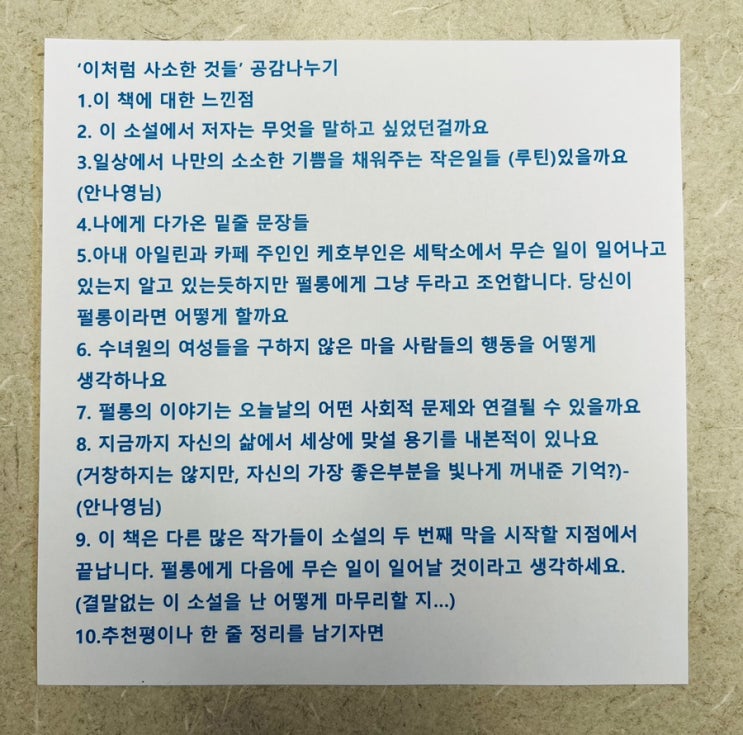 ‘이처럼 사소한 것들’ 공감나누기
1.이 책에 대한 느낀점
2. 이 소설에서 저자는 무엇을 말하고 싶었던걸까요
3.일상에서 나만의 소소한 기쁨을 채워주는 작은일들 (루틴)있을까요
(안나영님)
4.나에게 다가온 밑줄 문장들
5.아내 아일린과 카페 주인인 케호부인은 세탁소에서 무슨 일이 일어나고
있는지 알고 있는듯하지만 펄롱에게 그냥 두라고 조언합니다. 당신이
펄롱이라면 어떻게 할까요
6. 수녀원의 여성들을 구하지 않은 마을 사람들의 행동을 어떻게
생각하나요
7. 펄롱의 이야기는 오늘날의 어떤 사회적 문제와 연결될 수 있을까요
8. 지금까지 자신의 삶에서 세상에 맞설 용기를 내본적이 있나요
(거창하지는 않지만, 자신의 가장 좋은부분을 빛나게 꺼내준 기억?)-
(안나영님)
9. 이 책은 다른 많은 작가들이 소설의 두 번째 막을 시작할 지점에서
끝납니다. 펄롱에게 다음에 무슨 일이 일어날 것이라고 생각하세요.
(결말없는 이 소설을 난 어떻게 마무리할 지...)
10.추천평이나 한 줄 정리를 남기자면